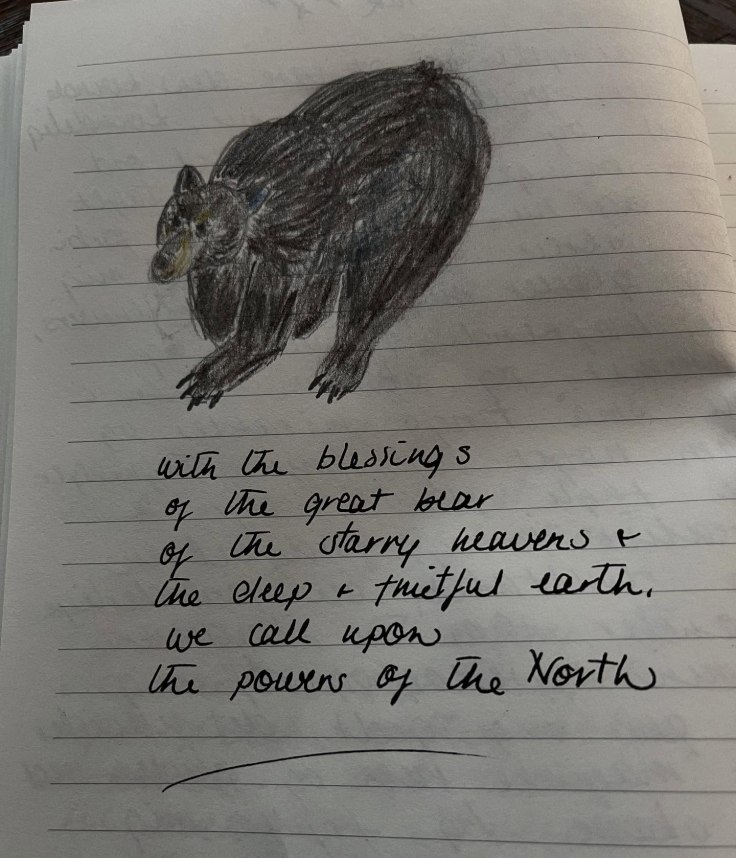 with the blessings
of the great bear
of the starry heavens +
the deep + fruitful earth.
we call upon
the powers of the North